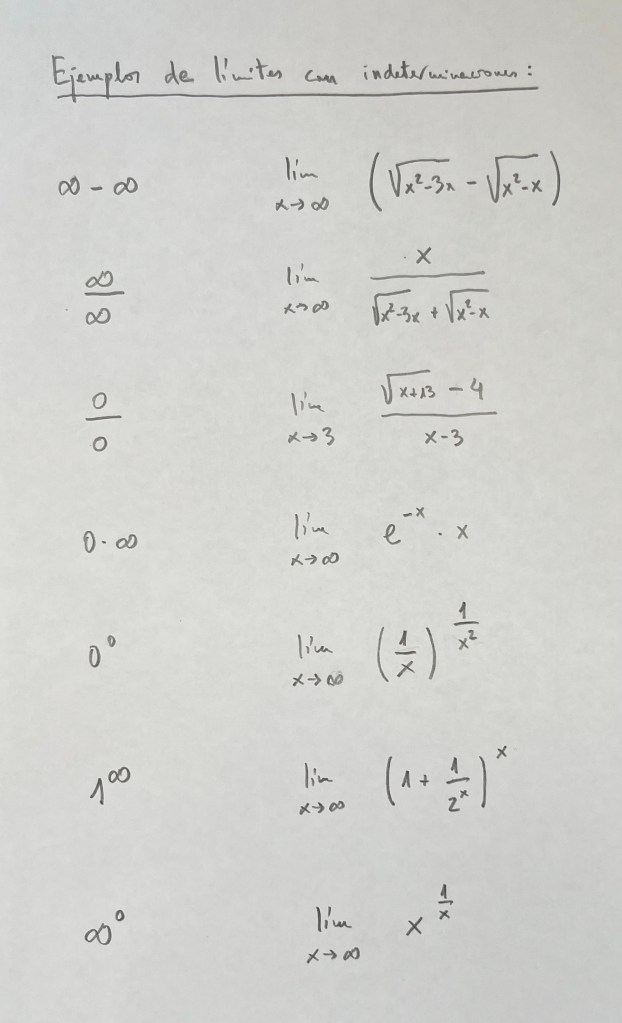 Ejemplos de límites con indeterminaciones:
∞ - ∞ lím x→∞ (√(x²-3x) - √(x²-x))
∞/∞ lím x→∞ x/(√(x²-3x) + √(x²-x))
0/0 lím x→3 (√(x+13) - 4)/(x-3)
0·∞ lím x→∞ e^(-x) · x
0⁰ lím x→∞ (1/x)^(1/x²)
1^∞ lím x→∞ (1 + 1/2^x)^x
∞⁰ lím x→∞ x^(1/x)